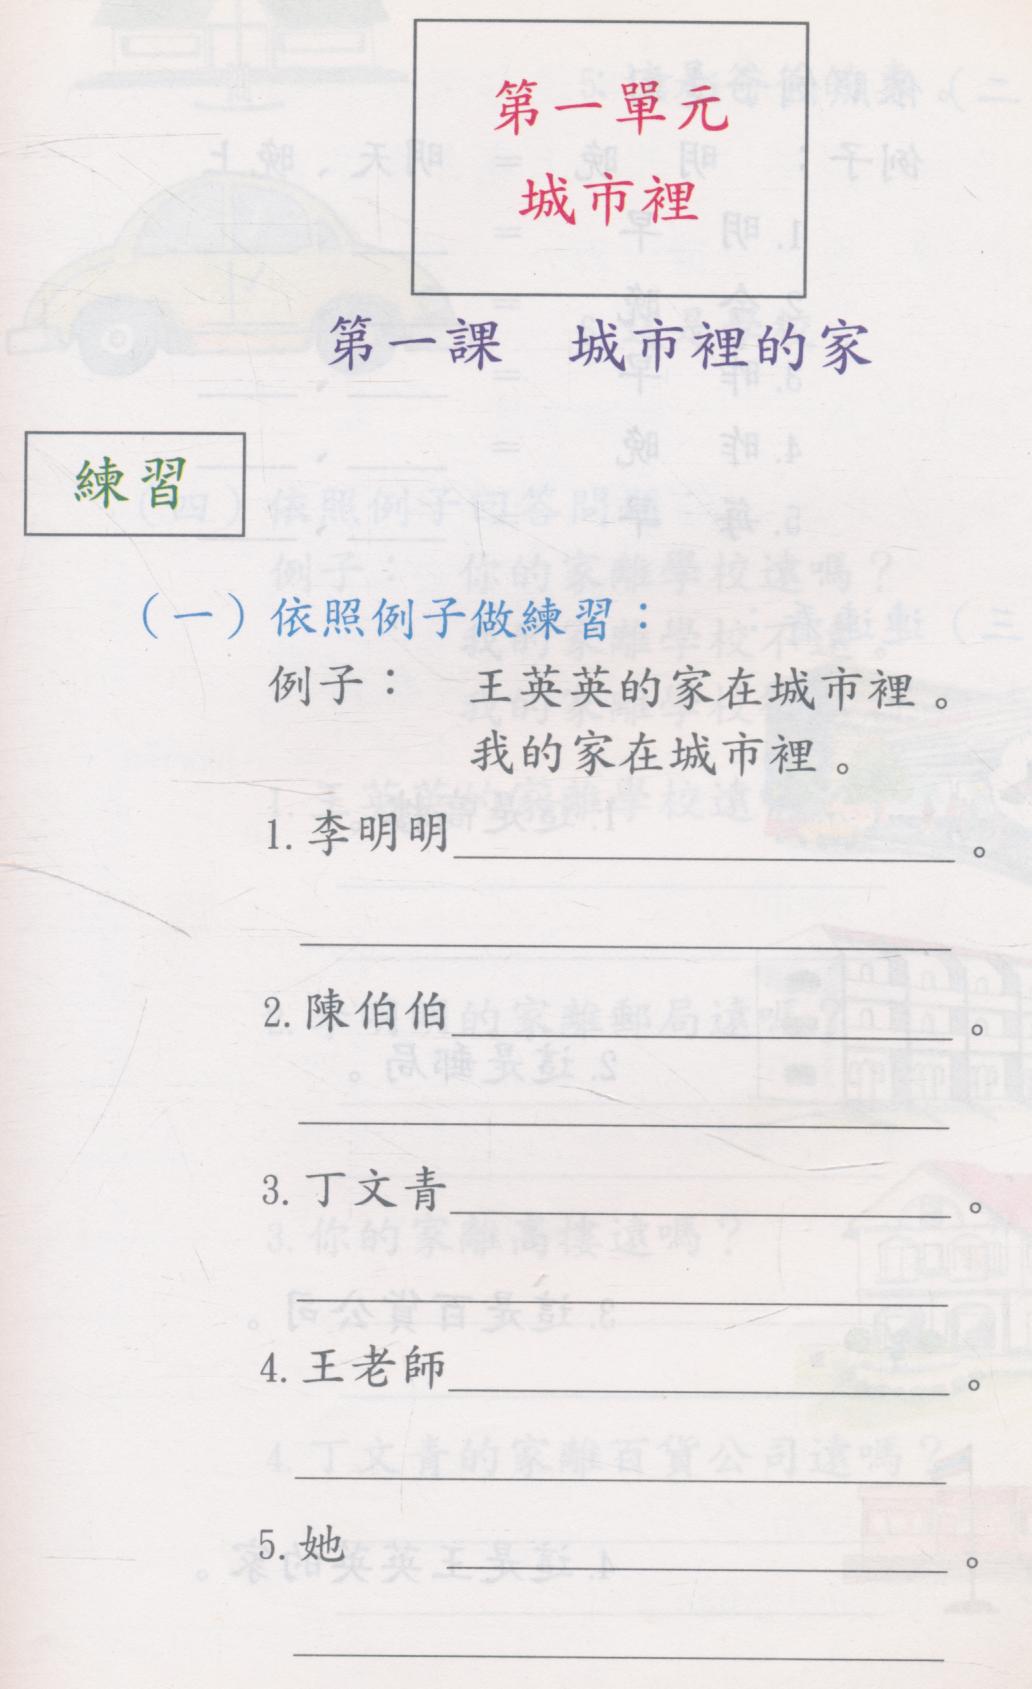 第一單元
城市裡
第一課　城市裡的家
練習
（一）依照例子做練習：
例子：　王英英的家在城市裡。
我的家在城市裡。
1. 李明明＿＿＿＿＿＿＿＿＿＿。
2. 陳伯伯＿＿＿＿＿＿＿＿＿＿。
3. 丁文青＿＿＿＿＿＿＿＿＿＿。
4. 王老師＿＿＿＿＿＿＿＿＿＿。
5. 她＿＿＿＿＿＿＿＿＿＿。